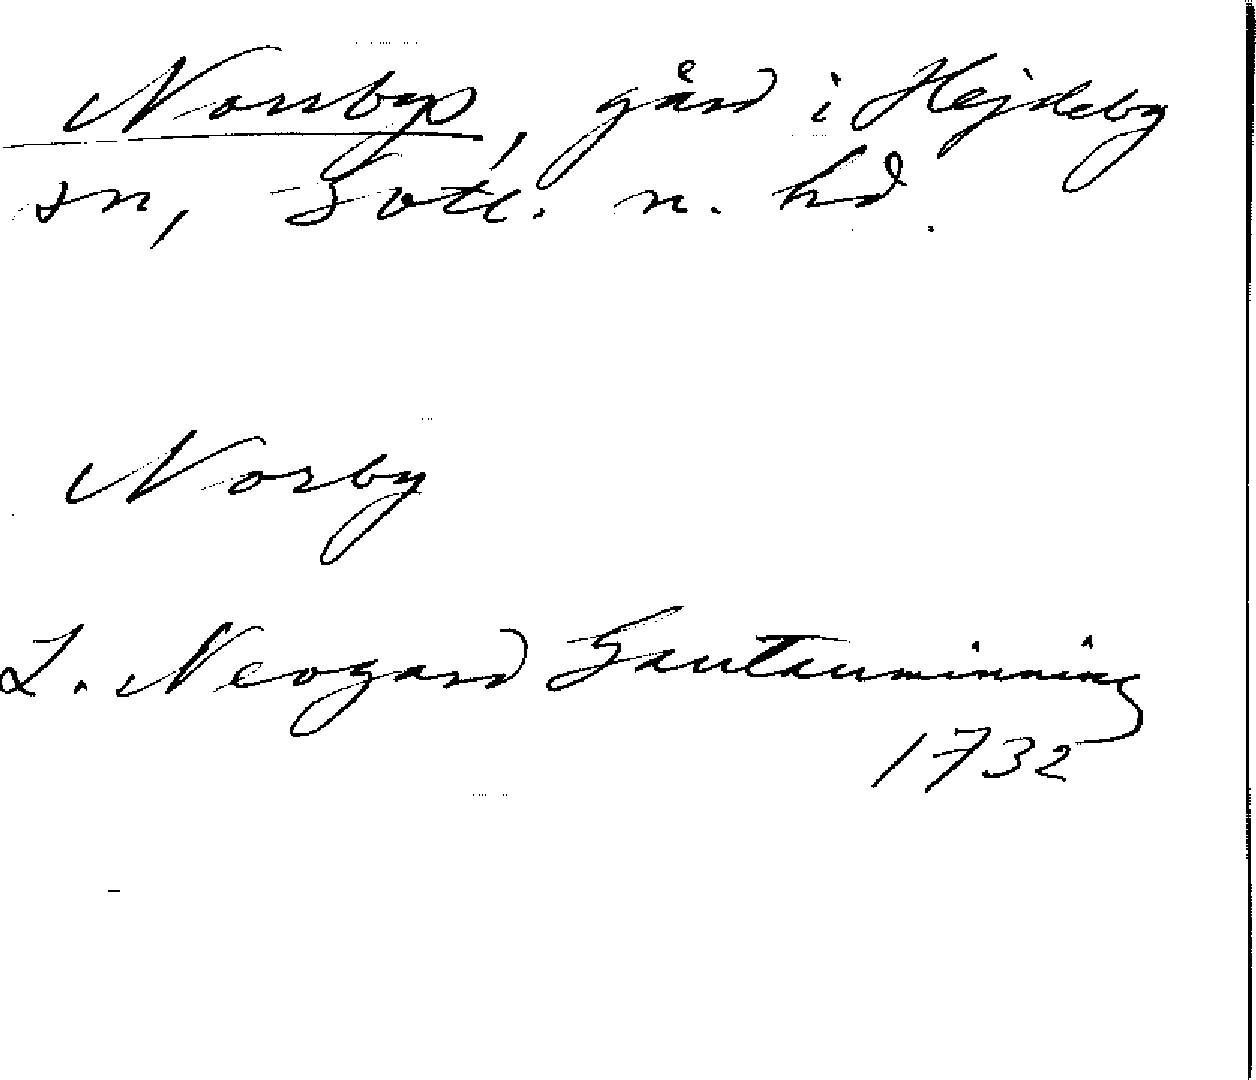 Norrbys, gård i Hejdeby
sn, Gotl. n. hd.
Norby
L. Neogard Gautauminning
1732